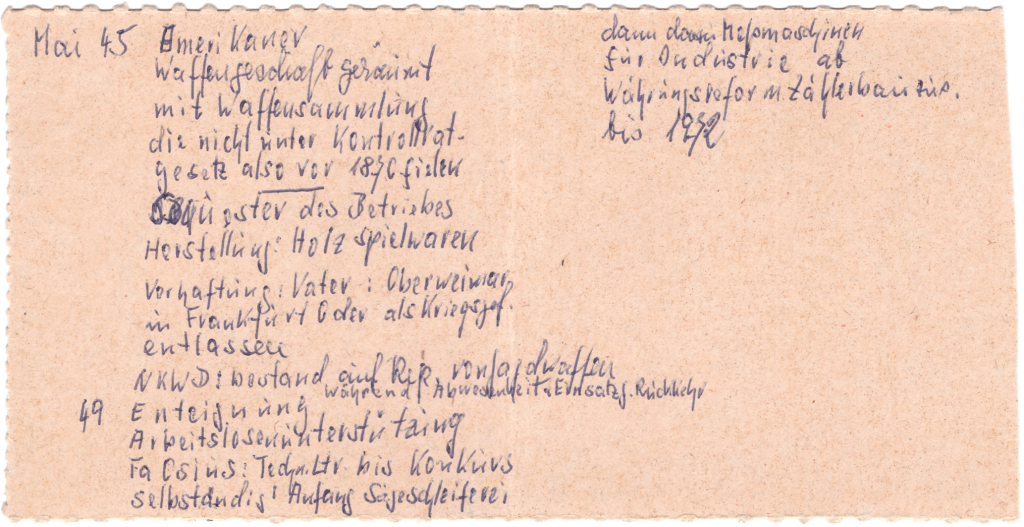 Mai 45 Amerikaner
Waffengeschäft geräumt
mit Waffensammlung
die nicht unter Kontrollrat-
gesetz also vor 1870 fielen
Sequester des Betriebes
Herstellung: Holzspielwaren
Verhaftung: Vater: Oberweimar
in Frankfurt Oder als Kriegsgef.
entlassen
NKWD: bestand auf Rep. von Jagdwaffen
während Abwesenheit u. Einsatz f. Rückkehr
49 Enteignung
Arbeitslosenunterstützung
Fa Osius: Techn. Ltr. bis Konkurs
selbständig: Anfang Sägeschleiferei
dann Meßmaschinen
für Industrie ab
Währungsreform Zählerbau
bis 1972